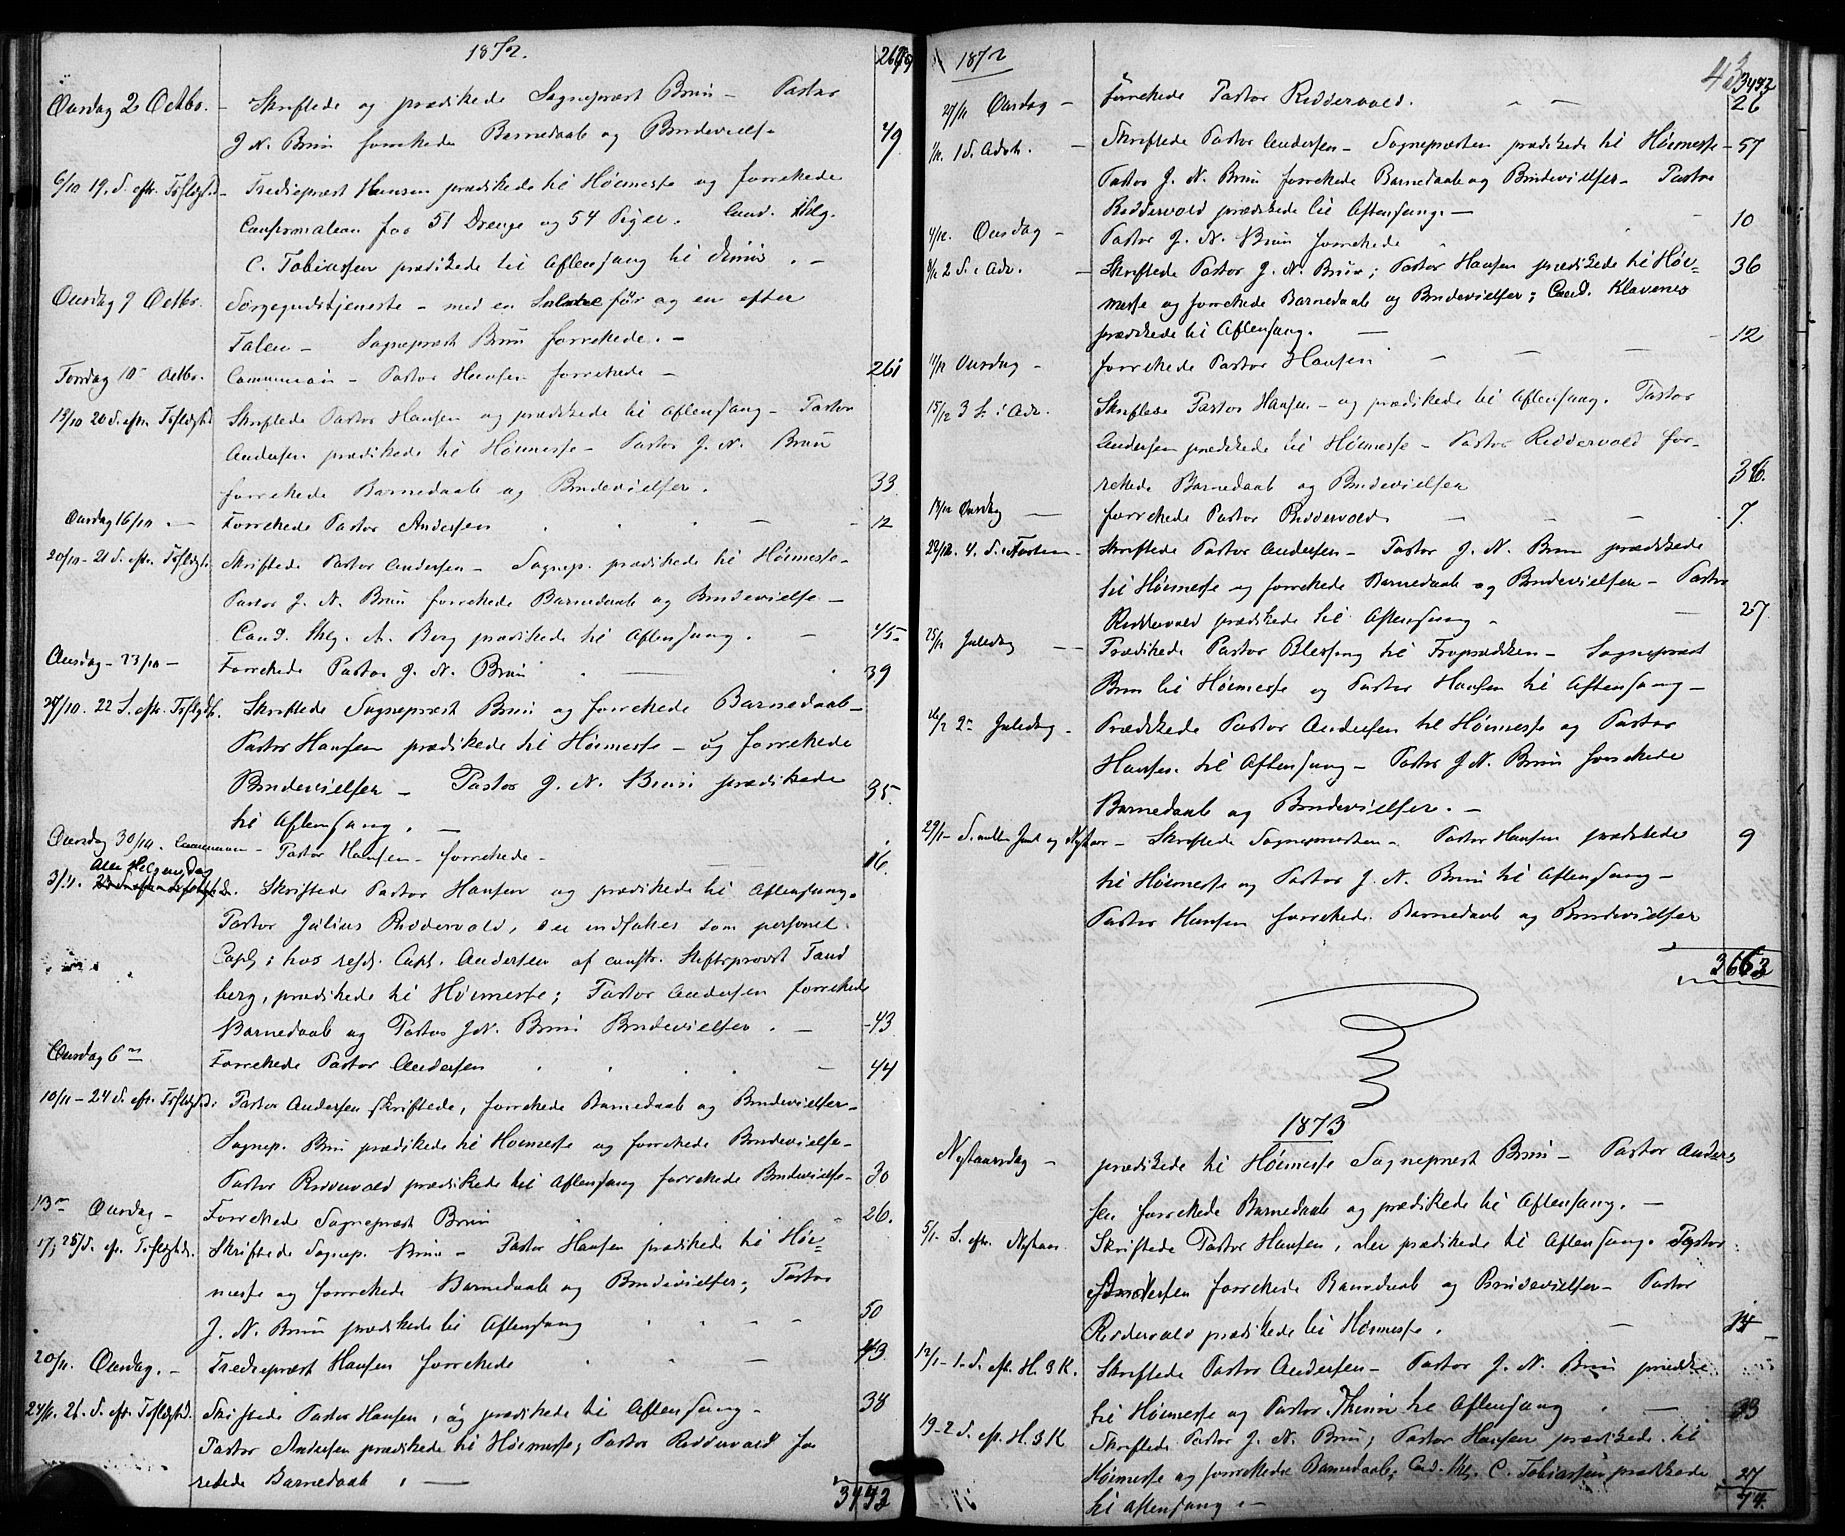 1872.
Onsdag 2 Octbr. - Skriftede og prædikede Sognepræst Brun - Pastor
J. N. Brun forrettede Barnedaab og Brudevielse 49
6/10 19. S. eft. Trefoldgh. - Trediepræst Hansen prædikede til Høimesse og forrettede
Confirmation for 51 Drenge og 54 Piger. Cand. theolg.
C. Tobiassen prædikede til Aftensang
Onsdag 9 Octbr. Sørgegudstjeneste - med en Salme før og en efter
Talen - Sognepræst Brun forrettede. -
Torsdag 10 Octbr. Communion - Pastor Hansen forrettede - 261
13/10 20 S. eftr. Trefoldgh. Skriftede Pastor Hansen og prædikede til Aftensang - Pastor
Andersen prædikede til Høimesse - Pastor J. N. Brun
forrettede Barnedaab og Brudevielser. 33
Onsdag 16/10 - Forrettede Pastor Andersen 12
20/10 - 21 S. eftr. Trefoldgh. Skriftede Pastor Andersen - Sognep. prædikede til Høimesse -
Pastor J. N. Brun forrettede Barnedaab og Brudevielse -
Cand. theolg. A. Berg prædikede til Aftensang. - 45
Onsdag - 23/10 - Forrettede Pastor J. N. Brun 39
27/10. 22 S. eftr. Trefoldgh. Skriftede Sognepræst Brun og forrettede Barnedaab -
Pastor Hansen prædikede til Høimesse - og forrettede
Brudevielser - Pastor J. N. Brun prædikede 35.
til Aftensang. -
Onsdag 30/10. Communion - Pastor Hansen - forrettede - 16.
3/11. Alle Helgensdag Skriftede Pastor Hansen og prædikede til Aftensang.
Pastor Julius Riddervold, der indsattes som personel
Capl; hos resid. Capl. Andersen af const. Stiftsprovst Tand
berg, prædikede til Høimesse; Pastor Andersen forrettede
Barnedaab og Pastor J. N. Brun Brudevielser. - 43
Onsdag 6 Forrettede Pastor Andersen 44
10/11 - 24 S. eft. Trefoldgh. Pastor Andersen skriftede, forrettede Barnedaab og Brudevielser -
Sognep. Brun prædikede til Høimesse og forrettede Brudevielse -
Pastor Riddervold prædikede til Aftensang forrettede Brudevielse - 30
13 Onsdag - Forrettede Sognepræst Brun 26.
17, 25 S. eft. Trefoldgh. Skriftede Sognep. Brun - Pastor Hansen prædikede til Høi-
messe og forrettede Barnedaab og Brudevielser; Pastor
J. N. Brun prædikede til Aftensang 50
20/11. Onsdag. - Trediepræst Hansen forrettede 43.
24/11. 26. S. eft. Trefoldgh. Skriftede Pastor Hansen, og prædikede til Aftensang - 38
Pastor Andersen prædikede til Høimesse, Pastor Riddervold for
rettede Barnedaab. -
3432
1872
3432
27/11 Onsdag - forrettede Pastor Riddervold. 26
1/12. 1 S. Advt. - Skriftede Pastor Andersen - Sognepræsten prædikede til Høimesse - 57
Pastor J. N. Brun forrettede Barnedaab og Brudevielser - Pastor
Riddervold prædikede til Aftensang. -
4/12. Onsdag - Pastor J. N. Brun forrettede 10
8/12 2 S. i Adv. - Skriftede Pastor J. N. Brun; Pastor Hansen prædikede til Høi- 36
messe og forrettede Barnedaab og Brudevielser; Cand. Klavenes
prædikede til Aftensang. -
11/12 Onsdag - forrettede Pastor Hansen 12
15/12 3 S. i Adv. Skriftede Pastor Hansen - og prædikede til Aftensang. Pastor
Andersen prædikede til Høimesse - Pastor Riddervold for-
rettede Barnedaab og Brudevielser 36.
18/12 Onsdag - forrettede Pastor Riddervold 7.
22/12. 4. S. i Skriftede Pastor Andersen - Pastor J. N. Brun prædikede
til Høimesse og forrettede Barnedaab og Brudevielser - Pastor
Riddervold prædikede til Aftensang - 27
25/12 Juledag - - Prædikede Pastor Blessing til Froprædiken - Sognepræst
Brun til Høimesse og Pastor Hansen til Aftensang -
26/12 2 Juledag - Prædikede Pastor Andersen til Høimesse og Pastor
Hansen til Aftensang - Pastor J. N. Brun forrettede
Barnedaab og Brudevielser. -
29/12 - S. mellem Juul og Nytaar - Skriftede Sognepræsten - Pastor Hansen prædikede 9
til Høimesse og Pastor J. N. Brun til Aftensang -
Pastor Hansen forrettede Barnedaab og Brudevielser
3662
1873
Nytaarsdag - prædikede til Høimesse Sognepræst Brun - Pastor Anders
sen forrettede Barnedaab og prædikede til Aftensang. -
5/1 - S. eftr. Nytaar. Skriftede Pastor Hansen, der prædikede til Aftensang. Pastor
Andersen forrettede Barnedaab og Brudevielser - Pastor
Riddervold prædikede til Høimesse. -
12/1 - 1. S. eft. H. 3 K. Skriftede Pastor Andersen - Pastor J. N. Brun prædike
til Høimesse og Pastor Thinn til Aftensang 33
19 - 2 S. eft. H. 3 K Skriftede Pastor J. N. Brun; Pastor Hansen prædikede til
Høimesse og forrettede Barnedaab; Cand. theolg. C. Tobiassen prædikede 27
til Aftensang. - 74.